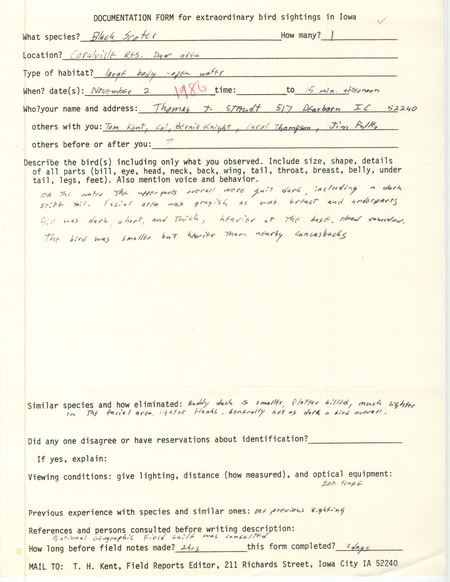 DOCUMENTATION FORM for extraordinary bird sightings in Iowa
What species? Black Scoter How many? 1
Location? Coralville Res. Dam area
Type of habitat? large body open water
When? date(s): November 2 1986 time: to 15 min. afternoon
Who?your name and address: Thomas J. Staudt 517 Dearborn I.C. 52240
others with you: Tom Kent, Cal, Bernie Knight, Carol Thompson, Jim Fuller
others before or after you: ?
Describe the bird(s) including only what you observed. Include size, shape, details
of all parts (bill, eye, head, neck, back, wing, tail, throat, breast, belly, under
tail, legs, feet). Also mention voice and behavior.
On the water the upperparts overall were quit dark, including a dark
stiff tail. Facial area was grayish as was breast and underparts
Bill was dark, short, and thick, heavier at the base. Head rounded.
The bird was smaller but heavier than nearby canvasbacks
Similar species and how eliminated: Ruddy duck is smaller, flatter billed, much lighter
in the facial area, lighter flanks. Generally not as dark a bird overall.
Did any one disagree or have reservations about identification?
If yes, explain:
Viewing conditions: give lighting, distance (how measured), and optical equipment:
20x scope
Previous experience with species and similar ones: one previous sighting
References and persons consulted before writing description:
National Geographic Field Guide was consulted
How long before field notes made? 2hrs this form completed? 3days
MAIL TO: T. H. Kent, Field Reports Editor, 211 Richards Street, Iowa City IA 52240